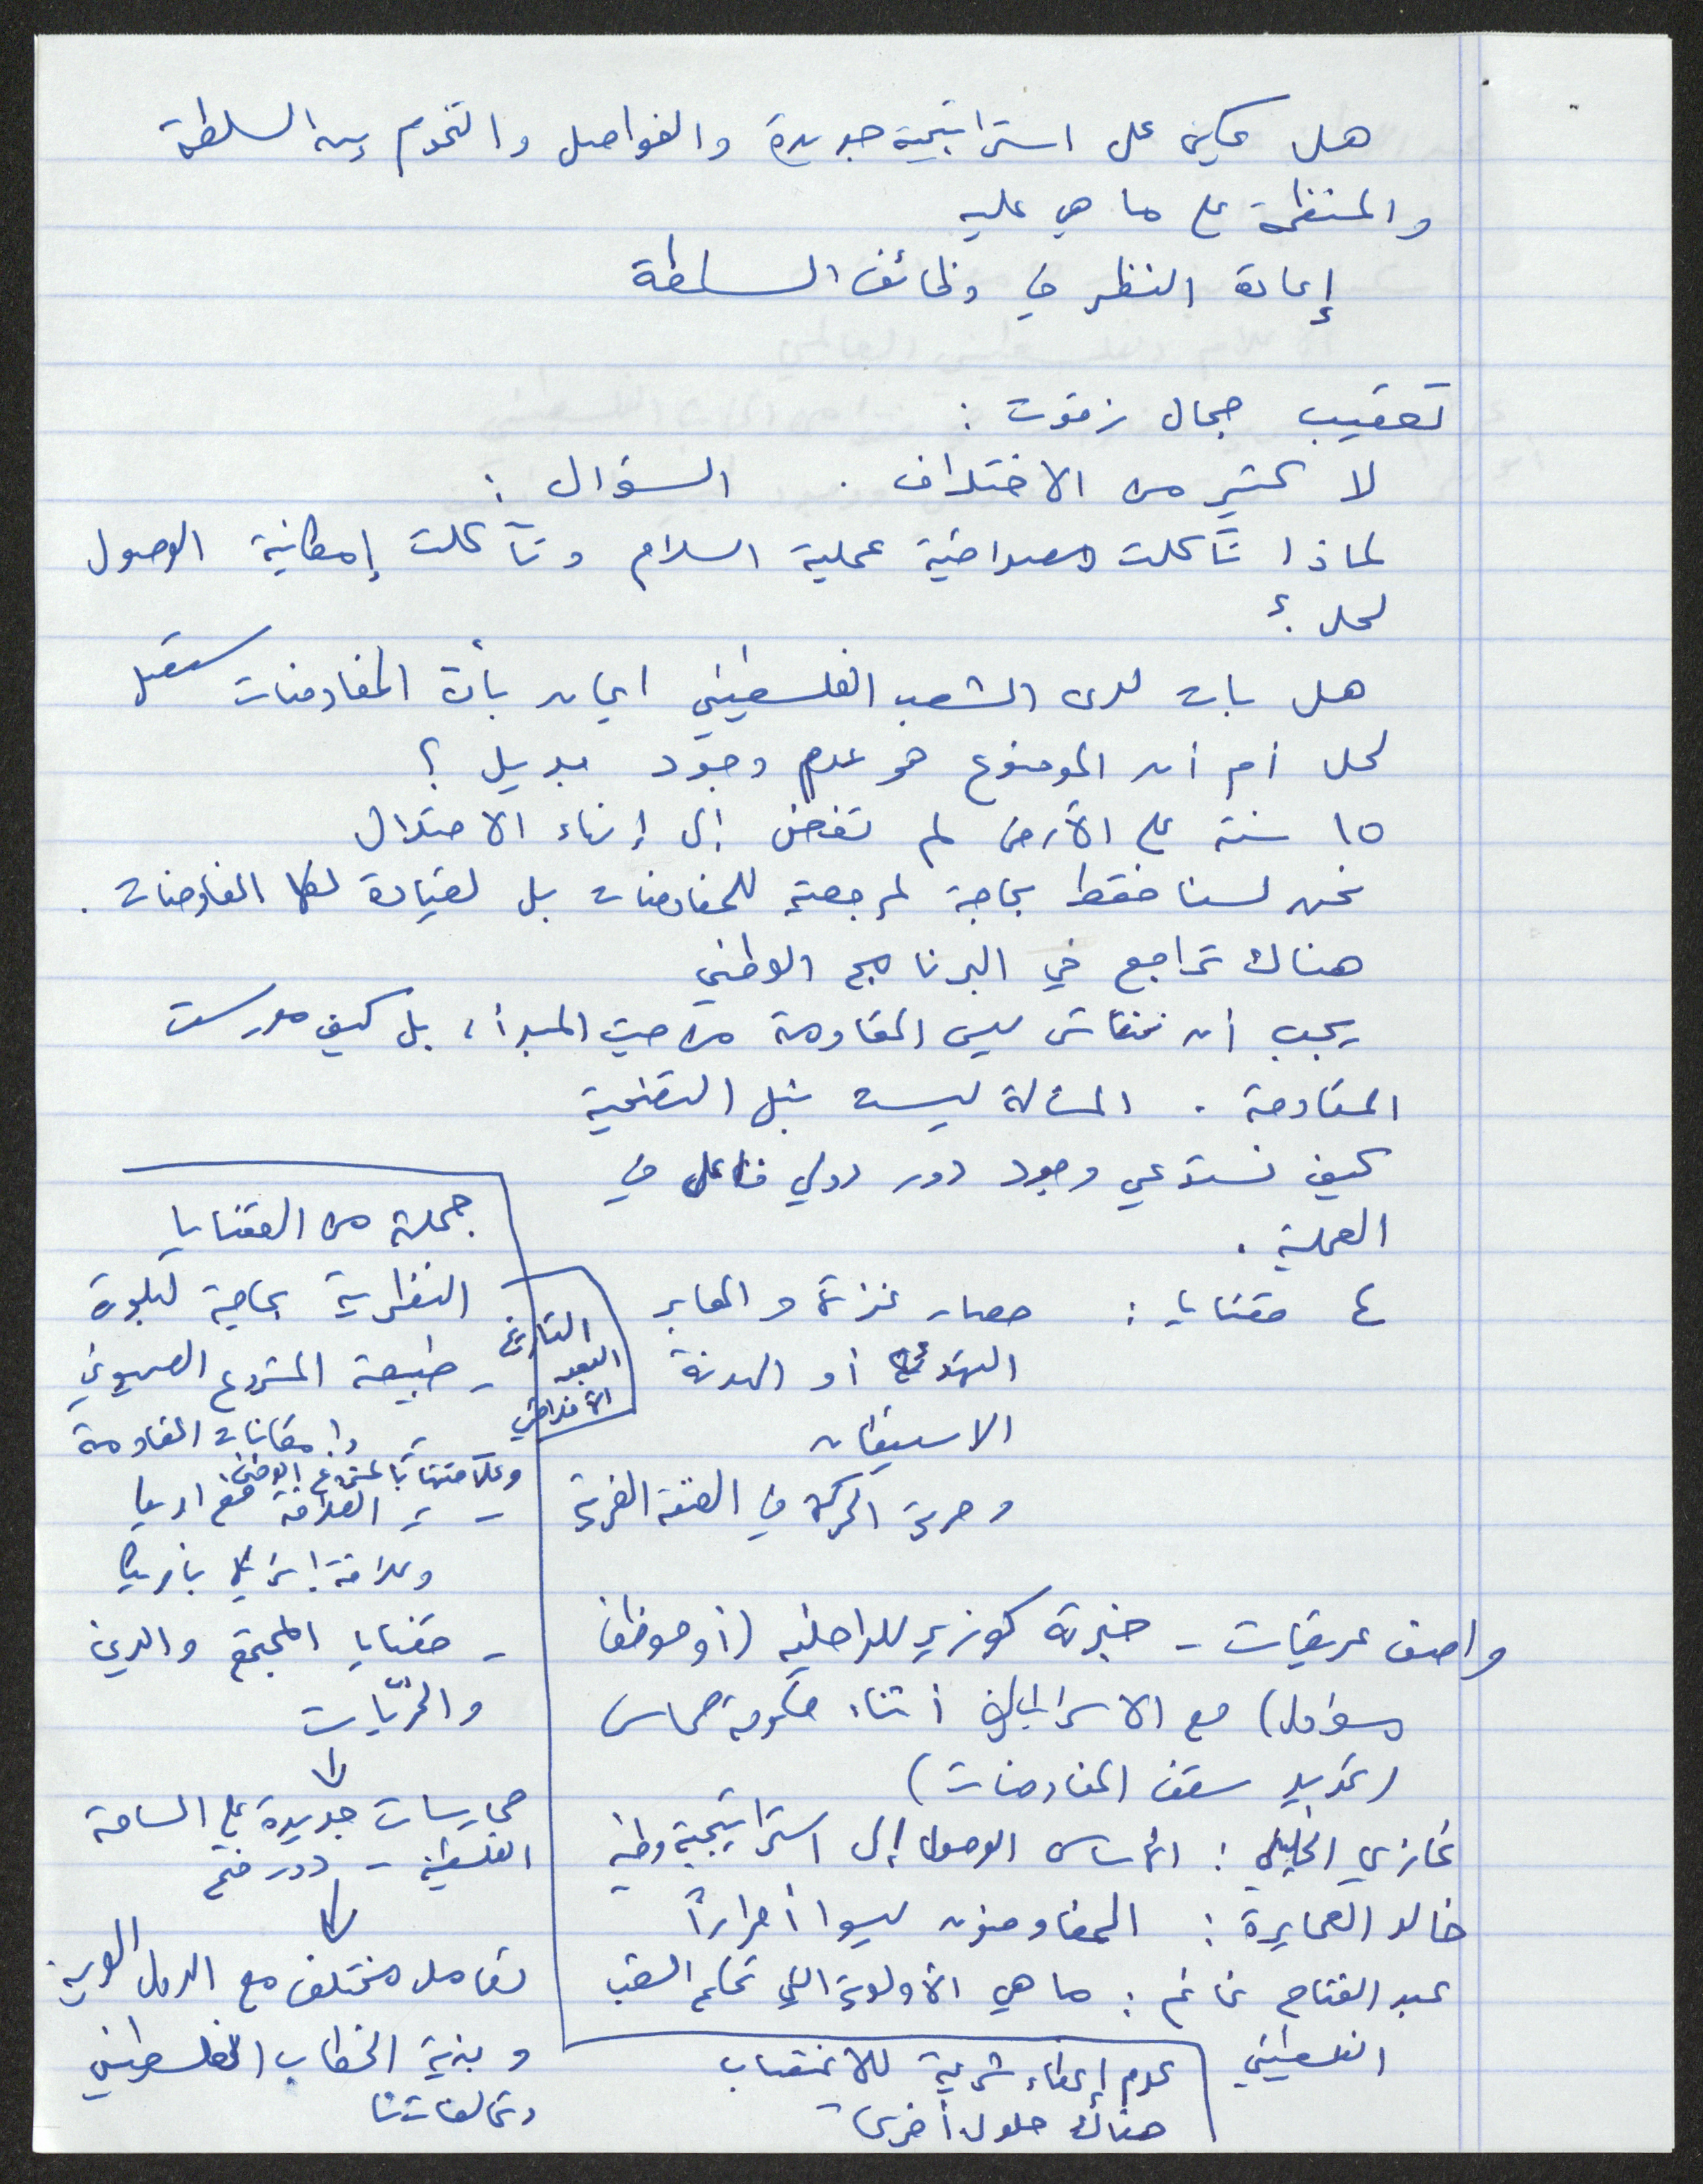 هل يمكن على استراتيجية جديدة والفواصل والتخوم بين السلطة
والمنظمة على ما هي عليه
إعادة النظر في وظائف السلطة
تعقيب جمال زقوت :
لا كثير من الاختلاف . السؤال :
لماذا تآكلت مصداقية عملية السلام وتآكلت إمكانية الوصول
لحل ؟
هل بات لدى الشعب الفلسطيني ايمان بأن المفاوضات ستصل
لحل أم أن الموضوع هو عدم وجود بديل ؟
١٥ سنة على الأرض لم تفض إلى إنهاء الاحتلال
نحن لسنا فقط بحاجة لمرجعية للمفاوضات بل لقيادة لهذه المفاوضات .
هناك تراجع في البرنامج الوطني
يجب أن نناقش ليس المقاومة من حيث المبدأ، بل كيف مورست
المقاومة . المسألة ليست بنبل التضحية
كيف نستدعي وجود دور دولي فاعل في
العملية .
٤ قضايا : حصار غزة والمعابر
التهدئة أو الهدنة
الاستيطان
وحرية الحركة في الضفة الغربية
واصف عريقات - خبرته كوزير للداخلية (أو موظف
مسؤول) مع الاسرائيليين أثناء حكومة حماس
(تحديد سقف المفاوضات)
غازي الخليلي : الأساس الوصول إلى استراتيجية وطنية
خالد العمايرة : المفاوضون ليسوا أحراراً
عبد الفتاح غانم : ما هي الأولوية التي تحكم الشعب
الفلسطيني
عدم إعطاء شرعية للاغتصاب
هناك حلول أخرى
جملة من القضايا
النظرية بحاجة لبلورة
التاريخ
البعد
الأخلاقي
- طبيعة المشروع الصهيوني
وإمكانات المقاومة
وعلاقتها بالمشروع الوطني
- العلاقة مع امريكا
وعلاقة إسرائيل بامريكا
- قضايا المجتمع والدين
والحرّيات
ممارسات جديدة على الساحة
الفلسطينية - دور فتح
تعامل مختلف مع الدول العربية
وبنية الخطاب الفلسطيني
وتحالفاتنا